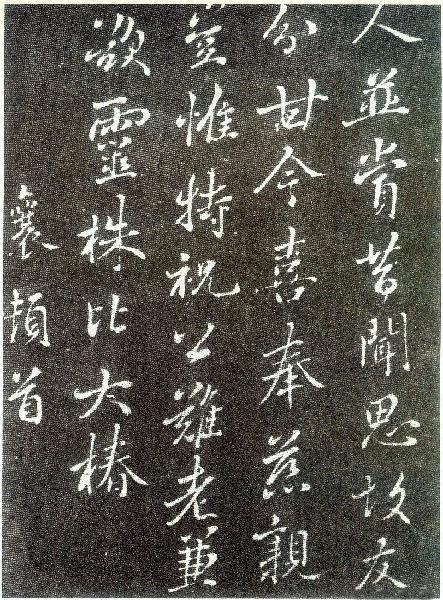 人並嘗昔聞思故友
分甘今喜奉慈親
豈惟特祝公難老兼
欲靈株比大椿
襄頓首